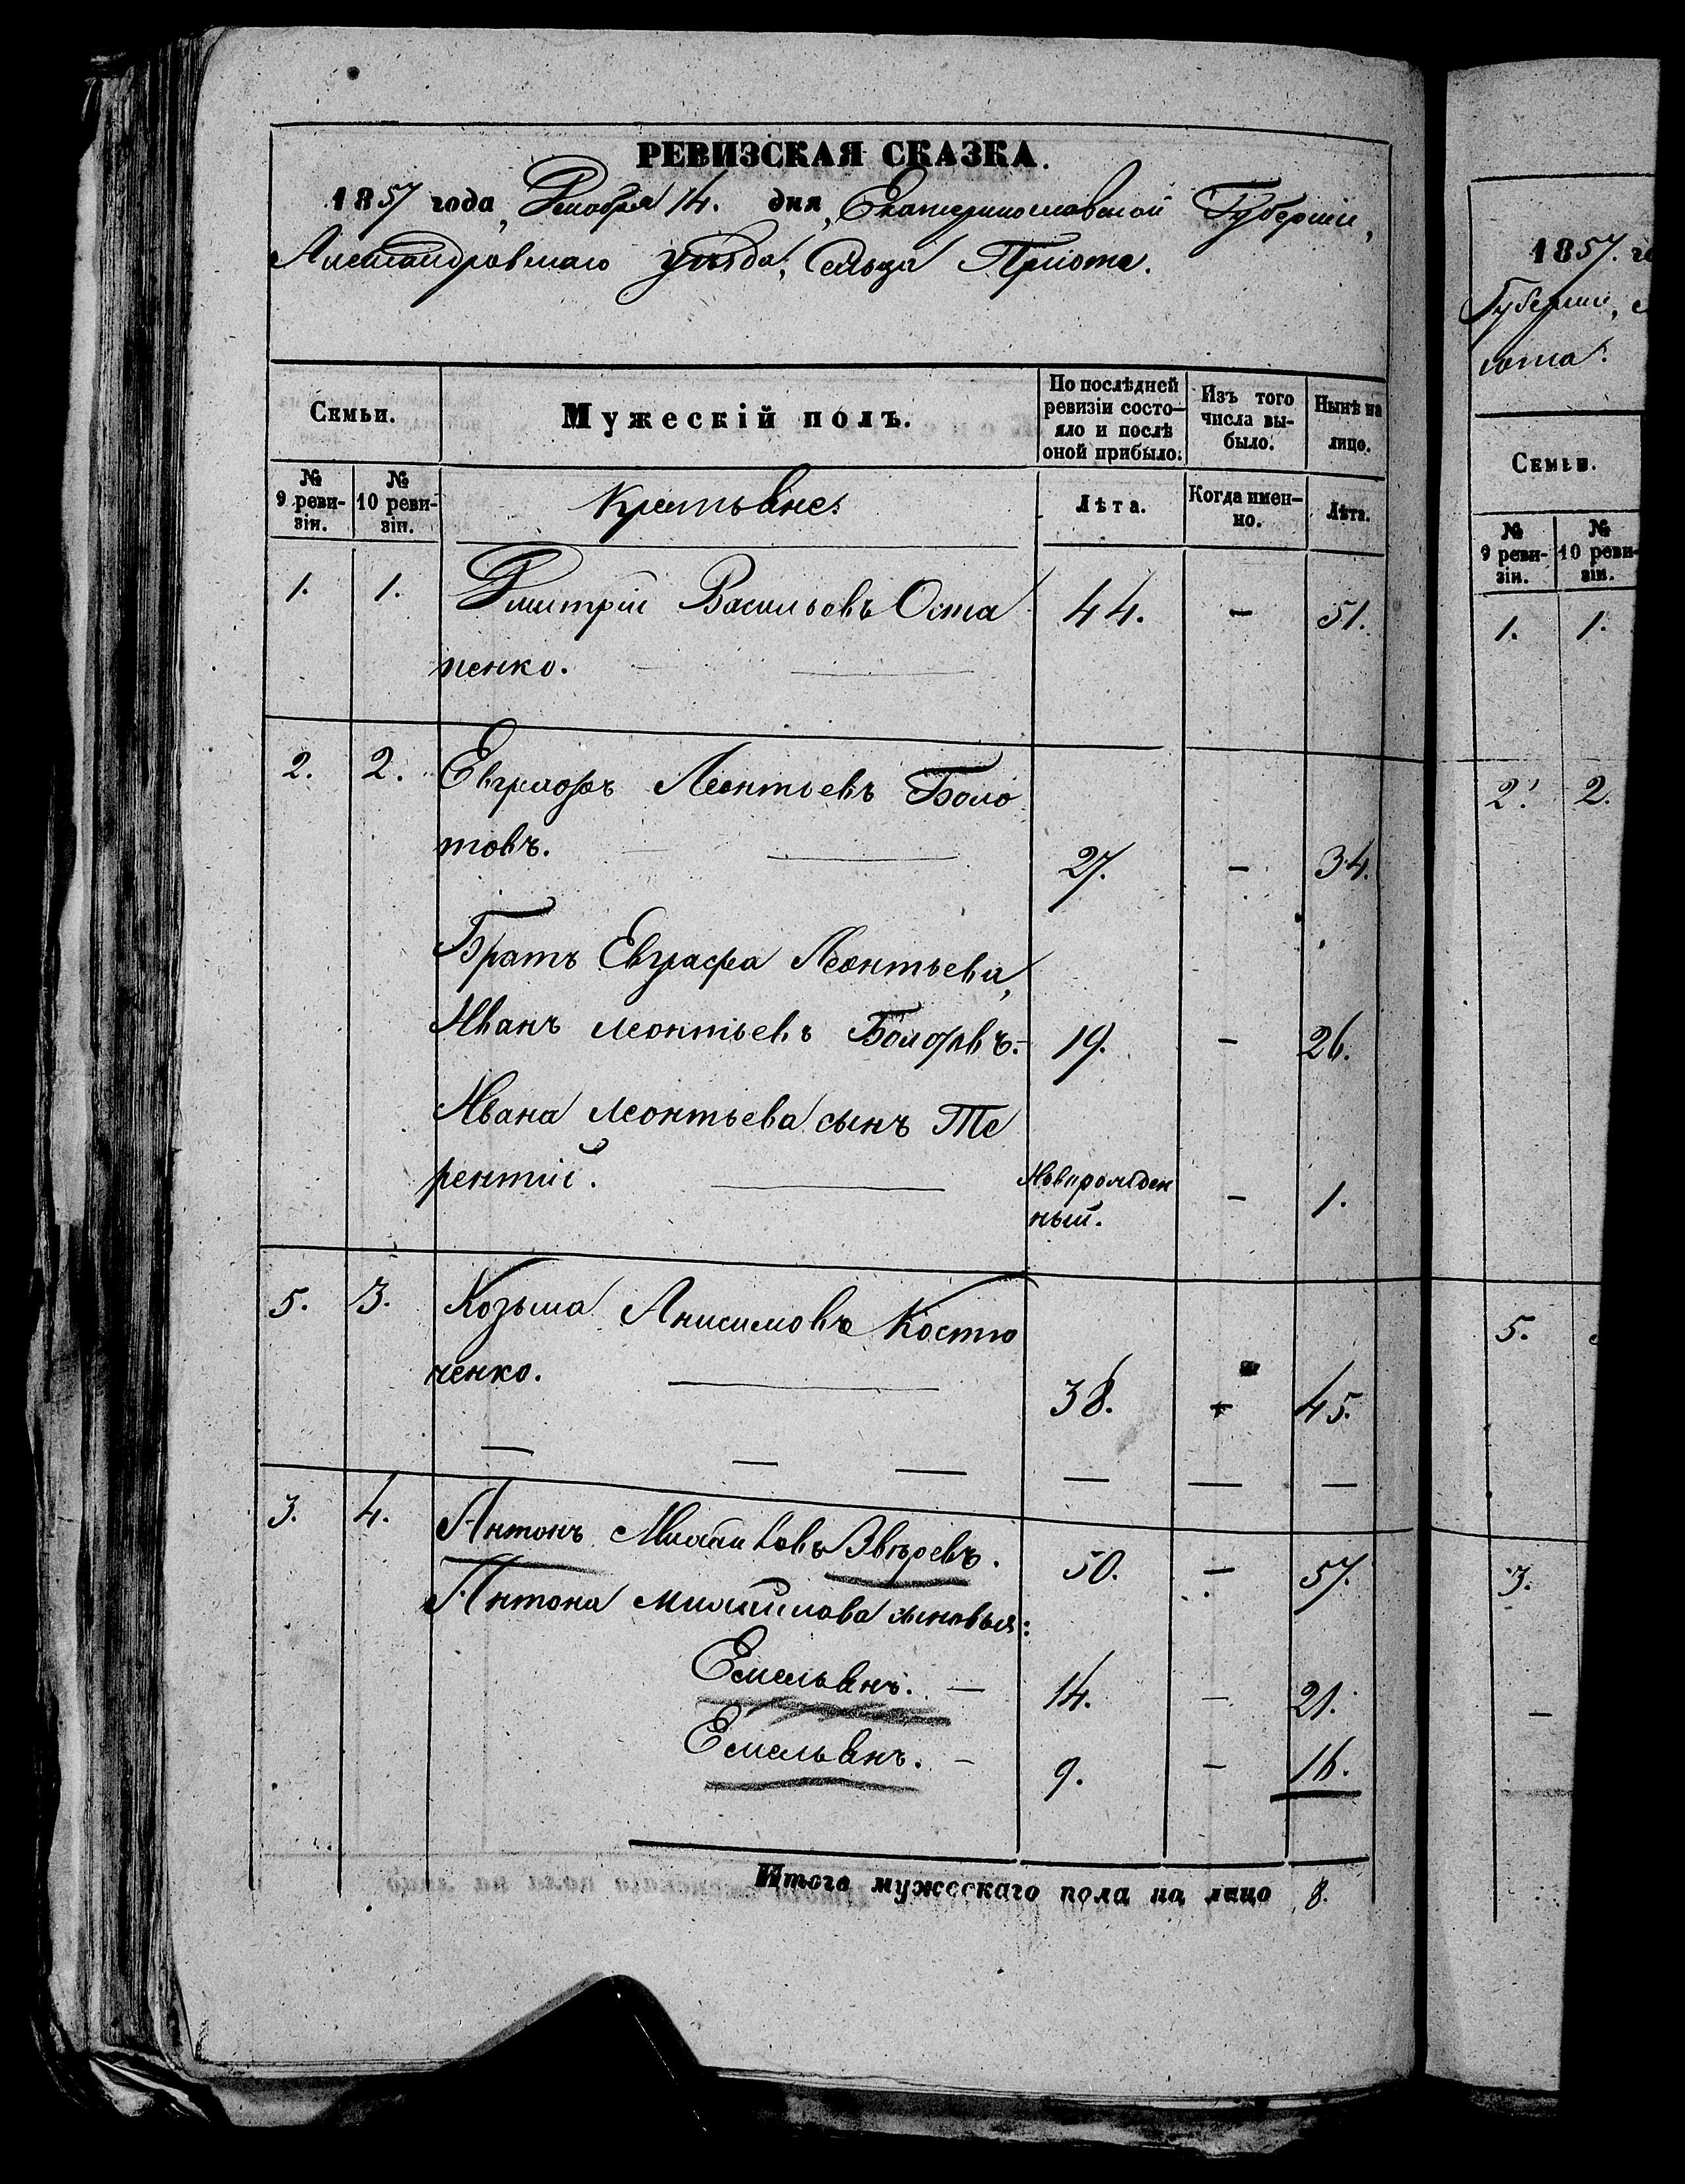 РЕВИЗСКАЯ СКАЗКА.
1857 года, Декабря 14. дня, Екатеринославской Губерніи,
Александровскаго уѣзда, Сельца Пріюта.
Семьи.
Мужескій полъ.
По послѣдней ревизіи состо-
яло и послѣ
оной прибыло.
Изъ того
числа вы-
было.
Нынѣ на
лицо.
№
9 реви-
зіи.
№
10 реви-
зіи.
Крестьяне
Лѣта.
Когда имен-
но.
Лѣта.
1. 1. Дмитрій Васильевъ Оста 44. - 51.
пенко.
2. 2. Евграфъ Леонтьевъ Боло
товъ. 27. - 34.
Братъ Евграфа Леонтьева,
Иванъ Леонтьевъ Болотовъ.- 19. - 26.
Ивана Леонтьева сынъ Те
рентій. Новорожден
ный. - 1.
5. 3. Козьма Анисимовъ Костю
ченко. 38. - 45.
3. 4. Антонъ Михайловъ Звѣревъ. 50. - 57.
Антона Михайлова сыновья:
Емельянъ. - 14. - 21.
Емельянъ. - 9. - 16.
Итого мужескаго пола на лицо 8.
1857. го
Губерніи,
юта.
Семьи.
№
9 реви-
зіи.
№
10 реви-
зіи.
1. 1.
2. 2.
5.
3.